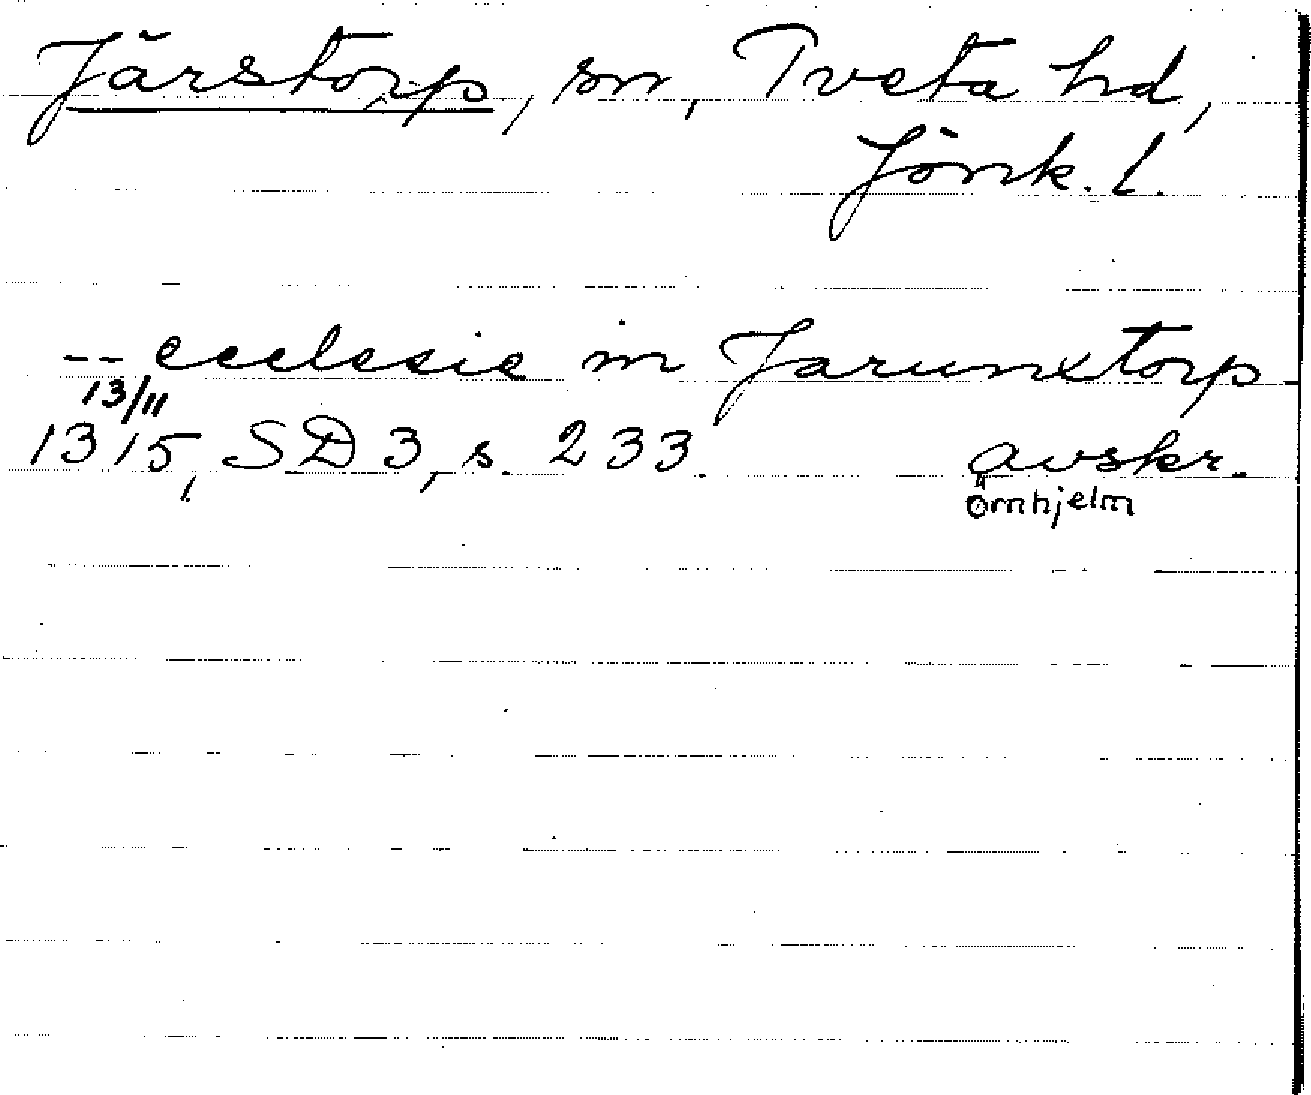 Järstorp, sn, Tveta hd,
Jönk. l.
-- ecclesie in Jarunxtorp -
13/11
1315, SD 3, s. 233. avskr.
Örnhjelm